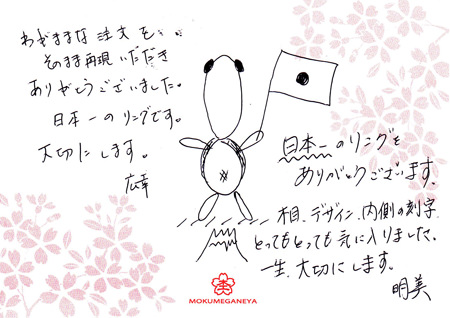 わがままな注文を、
そのまま再現いただき
ありがとうございました。
日本一のリングです。
大切にします。
広幸
日本一のリングを
ありがとうございます。
木目、デザイン、内側の刻字
とってもとっても気に入りました。
一生、大切にします。
明美
MOKUMEGANEYA